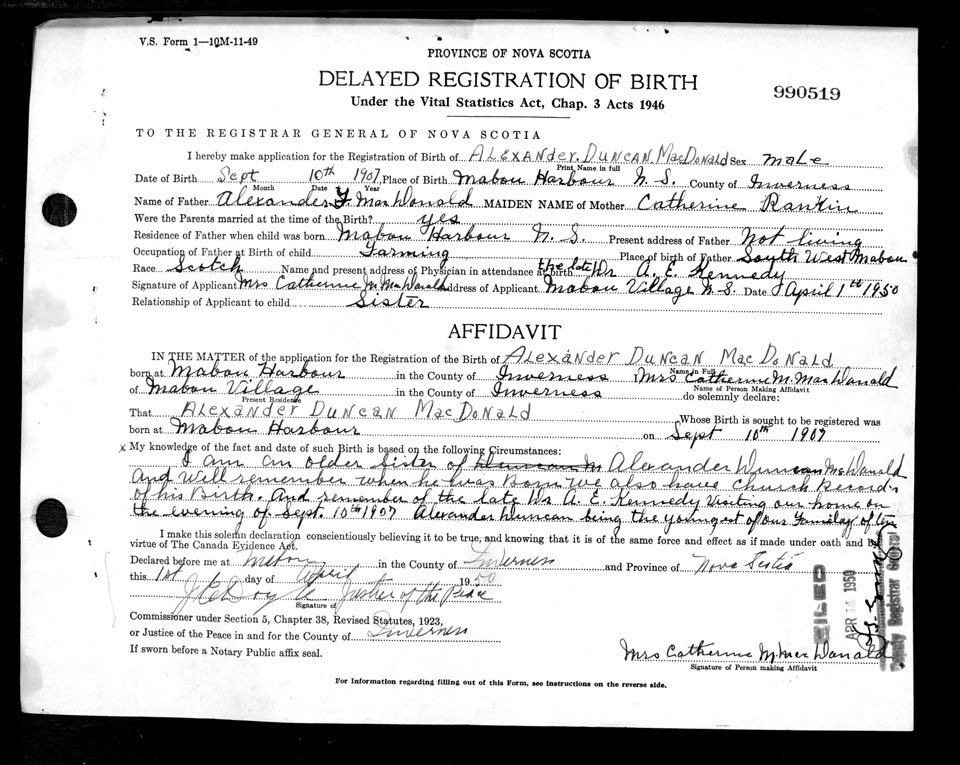 V.S. Form 1—10M-11-49
PROVINCE OF NOVA SCOTIA
DELAYED REGISTRATION OF BIRTH
990519
Under the Vital Statistics Act, Chap. 3 Acts 1946
TO THE REGISTRAR GENERAL OF NOVA SCOTIA
I hereby make application for the Registration of Birth of ALEXANDER DUNCAN MACDONALD Sex male
Print Name in full
Date of Birth Sept 10th 1907 Place of Birth Mabou Harbour N.S. County of Inverness
Month Date Year
Name of Father Alexander MacDonald MAIDEN NAME of Mother Catherine Rankin
Were the Parents married at the time of the Birth? yes
Residence of Father when child was born Mabou Harbour N.S. Present address of Father Not living
Occupation of Father at Birth of child Farming Place of birth of Father South West Mabou
Race Scotch Name and present address of Physician in attendance at birth the late Dr A. E. Kennedy
Signature of Applicant Mrs Catherine M MacDonald Address of Applicant Mabou Village N.S. Date April 1st 1950
Relationship of Applicant to child Sister
AFFIDAVIT
IN THE MATTER of the application for the Registration of Birth of ALEXANDER DUNCAN MACDONALD
Name in Full
born at Mabou Harbour in the County of Inverness Mrs Catherine M. MacDonald
Name of Person Making Affidavit
of Mabou Village in the County of Inverness do solemnly declare:
Present Residence
That ALEXANDER DUNCAN MACDONALD Whose Birth is sought to be registered was
born at Mabou Harbour on Sept 10th 1907
x My knowledge of the fact and date of such Birth is based on the following Circumstances:
I am an older Sister of Alexander Duncan McDonald
and Will remember when he was Born we also have Church Records
of his Birth. And remember of the late Dr A. E. Kennedy Visiting our home on
the evening of Sept. 10th 1907 Alexander Duncan being the youngest of our Familay of
I make this solemn declaration conscientiously believing it to be true, and knowing that it is of the same force and effect as if made under oath and by
virtue of The Canada Evidence Act.
Declared before me at Mabou in the County of Inverness and Province of Nova Scotia
this 1st day of April 1950
J E Doyle Justice of the Peace
Signature of
Commissioner under Section 5, Chapter 38, Revised Statutes, 1923,
or Justice of the Peace in and for the County of Inverness
If sworn before a Notary Public affix seal.
Mrs Catherine M MacDonald
Signature of Person making Affidavit
FILED
APR 14 1950
Deputy Registrar General
For Information regarding filling out of this Form, see Instructions on the reverse side.